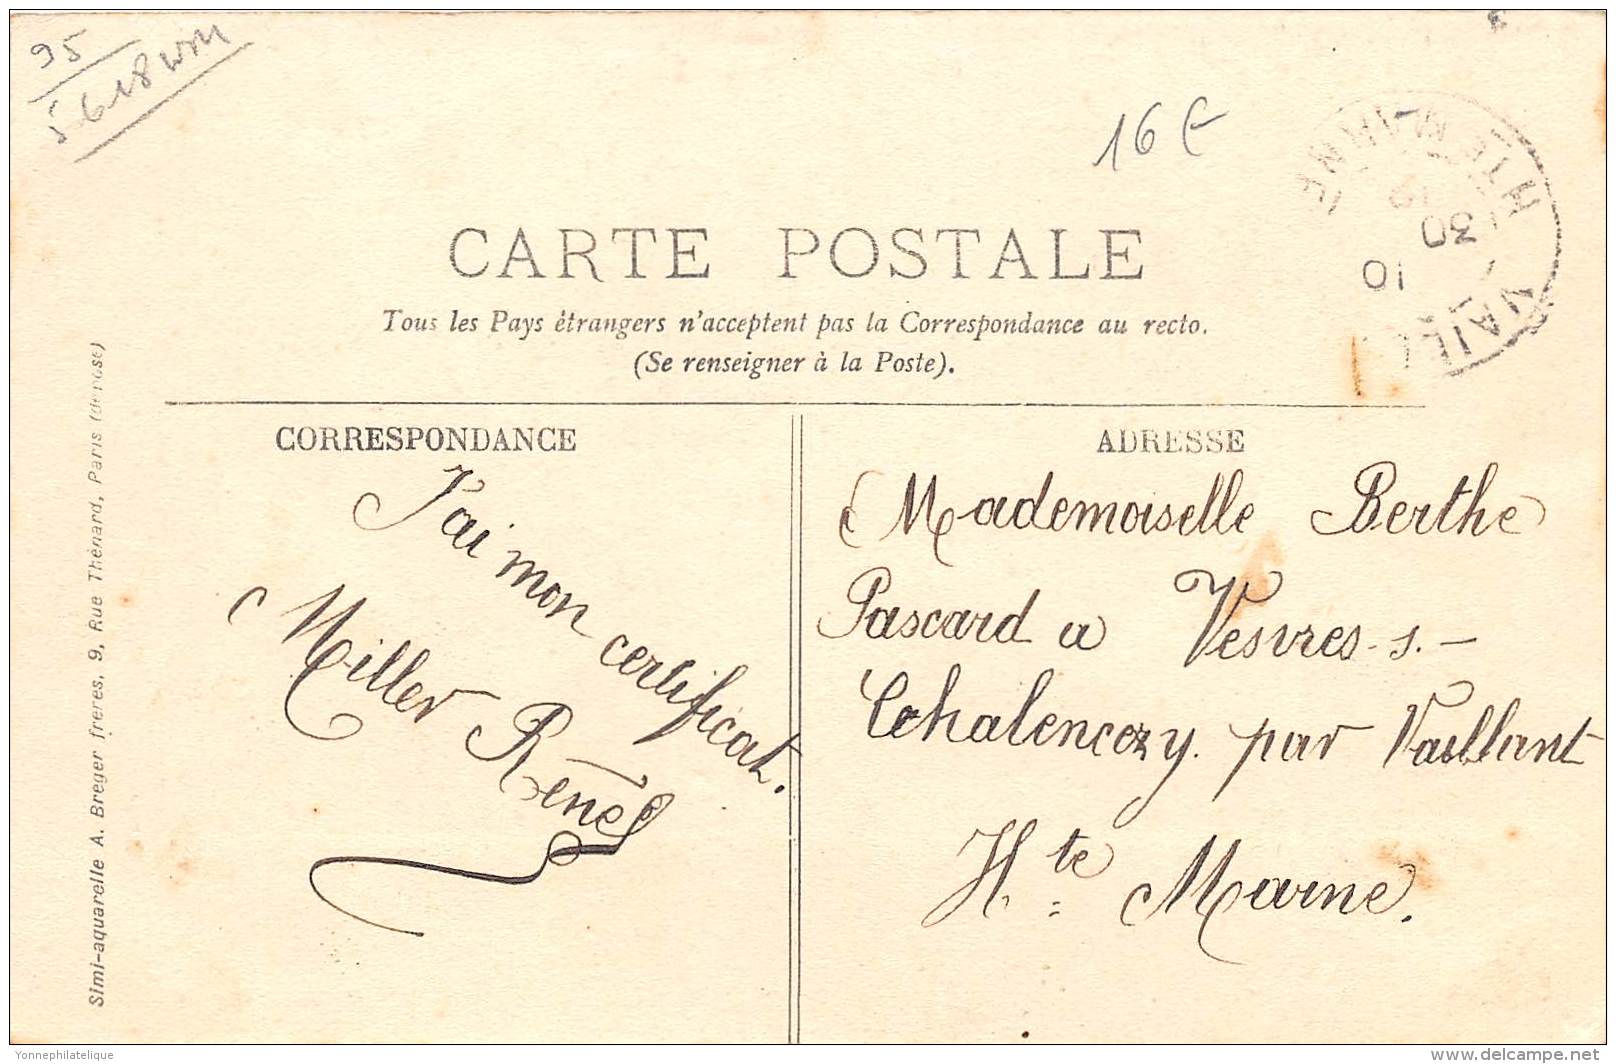 95
5618 WM
16 €
HTE MARNE
30
10
CARTE POSTALE
Tous les Pays étrangers n'acceptent pas la Correspondance au recto.
(Se renseigner à la Poste).
CORRESPONDANCE
J'ai mon certificat.
Miller René
ADRESSE
Mademoiselle Berthe
Pascard a Vesvres-s.-
Chalencey. par Vaillant
Hte Marne.
Simi-aquarelle A. Breger frères, 9, Rue Thénard, Paris (déposé)
Yonnephilatelique
www.delcampe.net